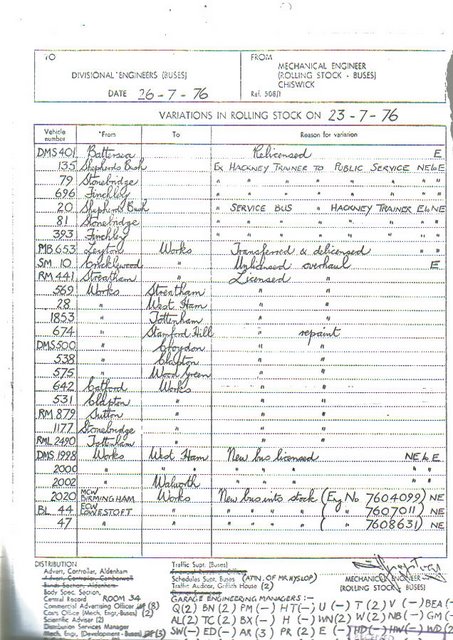 TO
DIVISIONAL ENGINEERS (BUSES)
DATE 26-7-76
FROM
MECHANICAL ENGINEER
(ROLLING STOCK - BUSES)
CHISWICK
Ref. 508/1
VARIATIONS IN ROLLING STOCK ON 23-7-76
Vehicle number *From To Reason for variation
DMS 401 Battersea Relicensed E
135 Shepherds Bush Ex HACKNEY TRAINER TO PUBLIC SERVICE NE&E
79 Stonebridge " " " " " " " "
696 Finchley " " " " " " " "
20 Shepherds Bush " SERVICE BUS " HACKNEY TRAINER E&NE
81 Stonebridge " " " " " " "
393 Finchley " " " " " " "
MB 653 Leyton Works Transferred & delicensed " "
SM 10 Cricklewood Unlicensed overhaul E
RM 441 Streatham " Licensed "
569 Works Streatham " "
28 " West Ham " "
1853 " Tottenham " "
674 " Stamford Hill " repaint
DMS 500 " Croydon " "
538 " Clapton " "
575 " Wood Green " "
642 Catford Works " "
531 Clapton " " "
RM 879 Sutton " " "
1177 Stonebridge " " "
RML 2490 Tottenham " " "
DMS 1998 Works West Ham New bus licensed NE&E
2000 " " " " " " "
2002 " Walworth " " " " "
2020 MCW BIRMINGHAM Works New bus into stock (Eng No 7604099) NE
BL 44 ECW LOWESTOFT " " " " " ( " " 7607011) "
47 " " " " " " ( " " 7608631) NE
DISTRIBUTION
Advert. Controller, Aldenham
Body Spec. Section
Central Record ROOM 34
Commercial Advertising Officer (8)
Cam. Effcy Office (Mech. Engr-Buses) (2)
Scientific Adviser (2)
Distribution Services Manager
Mech. Engr. (Development-Buses) (3)
Traffic Supt. (Buses)
Schedules Supt. Buses (ATTN. OF MR HYSLOP)
Traffic Auditor, Griffith House (2)
GARAGE ENGINEERING MANAGERS :-
Q(2) BN(2) PM(-) HT(-) U(-) T(2) V(-) BEA(-)
AL(2) TC(2) BX(-) H(-) WN(2) W(2) NB(-) GM(-)
MECHANICAL ENGINEER
(ROLLING STOCK - BUSES)